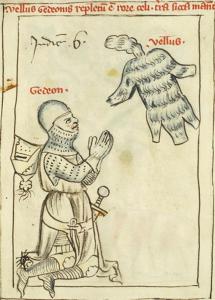 Vellus gedeonis repletur e rore celi terra sicca manen
Judicu 6
Vellus
Gedeon